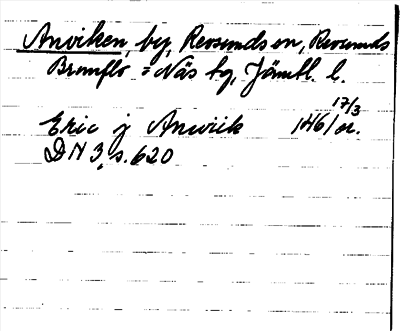 Anviken, by, Revsunds sn, Revsunds
Brunflo o Näs tg, Jämtl. l.
17/3
Eric j Anwiik 1461 or.
DN 3, s. 620